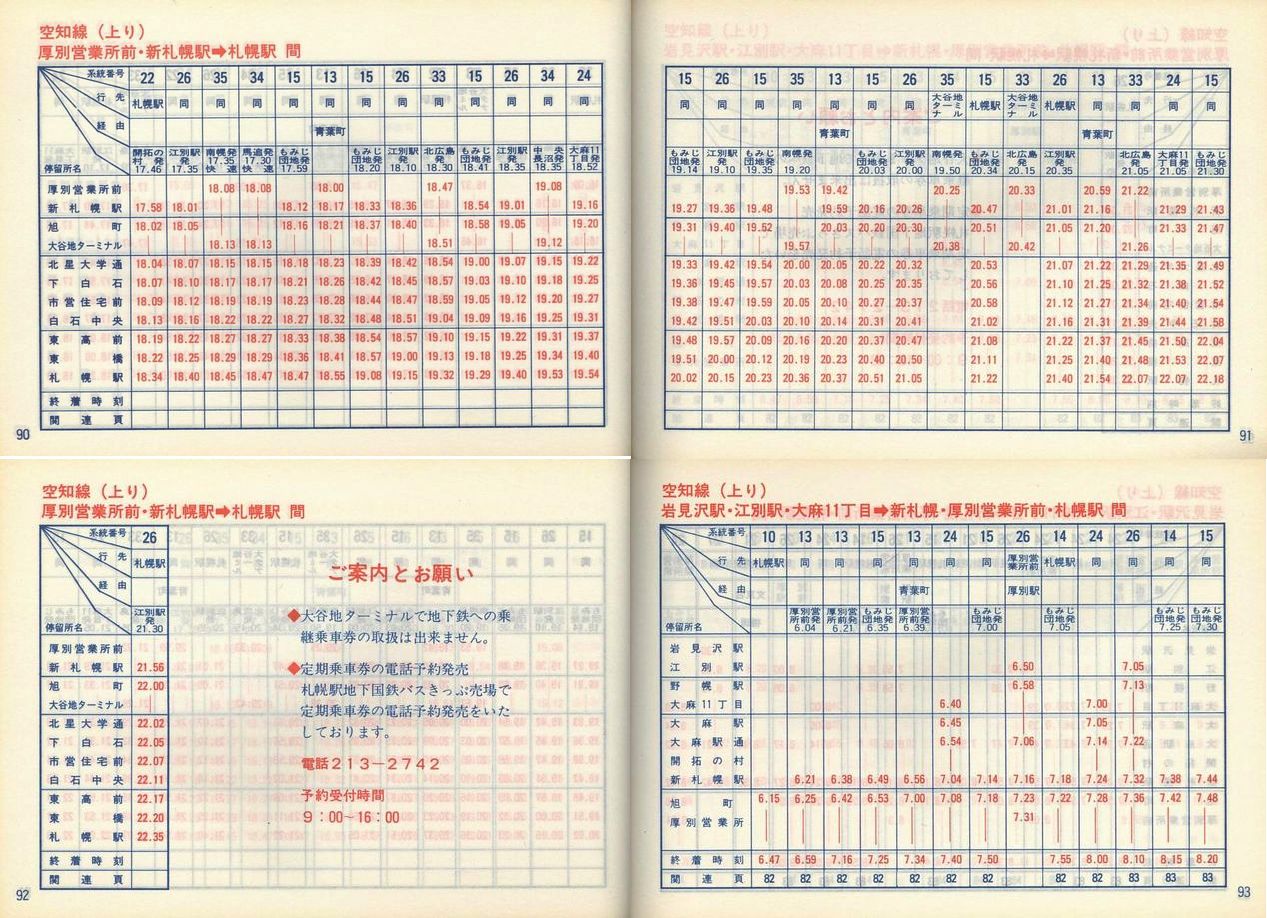 空知線（上り）
厚別営業所前・新札幌駅➡札幌駅 間
系統番号 22 26 35 34 15 13 15 26 33 15 26 34 24
行先 札幌駅 同 同 同 同 同 同 同 同 同 同 同 同
経由 青葉町
開拓の 江別駅 南幌発 馬追発 もみじ もみじ 江別駅 北広島 もみじ 江別駅 中央 大麻11
村発 発 17.35 17.30 団地発 団地発 発 発 団地発 発 長沼発 丁目発
停留所名 17.46 17.35 快速 快速 17.59 18.20 18.10 18.30 18.41 18.35 18.35 18.52
厚別営業所前 18.08 18.08 18.00 18.47 19.08
新札幌駅 17.58 18.01 18.12 18.17 18.33 18.36 18.54 19.01 19.16
旭町 18.02 18.05 18.16 18.21 18.37 18.40 18.58 19.05 19.20
大谷地ターミナル 18.13 18.13 18.51 19.12
北星大学通 18.04 18.07 18.15 18.15 18.18 18.23 18.39 18.42 18.54 19.00 19.07 19.15 19.22
下白石 18.07 18.10 18.17 18.17 18.21 18.26 18.42 18.45 18.57 19.03 19.10 19.18 19.25
市営住宅前 18.09 18.12 18.19 18.19 18.23 18.28 18.44 18.47 18.59 19.05 19.12 19.20 19.27
白石中央 18.13 18.16 18.22 18.22 18.27 18.32 18.48 18.51 19.04 19.09 19.16 19.25 19.31
東高前 18.19 18.22 18.27 18.27 18.33 18.38 18.54 18.57 19.10 19.15 19.22 19.31 19.37
東橋 18.22 18.25 18.29 18.29 18.36 18.41 18.57 19.00 19.13 19.18 19.25 19.34 19.40
札幌駅 18.34 18.40 18.45 18.47 18.47 18.55 19.08 19.15 19.32 19.29 19.40 19.53 19.54
終着時刻
関連頁
90
15 26 15 35 13 15 26 35 15 33 26 13 33 24 15
同 同 同 同 同 同 同 大谷地ターミナル 札幌駅 大谷地ターミナル 札幌駅 同 同 同 同
青葉町 青葉町
もみじ 江別駅 もみじ 南幌発 もみじ 江別駅 南幌発 もみじ 北広島 江別駅 北広島 大麻11 もみじ
団地発 発 団地発 団地発 発 団地発 発 発 発 丁目発 団地発
19.14 19.10 19.35 19.20 20.03 20.00 19.50 20.34 20.15 20.35 21.05 21.05 21.30
19.53 19.42 20.25 20.33 20.59 21.22
19.27 19.36 19.48 19.59 20.16 20.26 20.47 21.01 21.16 21.29 21.43
19.31 19.40 19.52 20.03 20.20 20.30 20.51 21.05 21.20 21.33 21.47
19.57 20.38 20.42 21.26
19.33 19.42 19.54 20.00 20.05 20.22 20.32 20.53 21.07 21.22 21.29 21.35 21.49
19.36 19.45 19.57 20.03 20.08 20.25 20.35 20.56 21.10 21.25 21.32 21.38 21.52
19.38 19.47 19.59 20.05 20.10 20.27 20.37 20.58 21.12 21.27 21.34 21.40 21.54
19.42 19.51 20.03 20.10 20.14 20.31 20.41 21.02 21.16 21.31 21.39 21.44 21.58
19.48 19.57 20.09 20.16 20.20 20.37 20.47 21.08 21.22 21.37 21.45 21.50 22.04
19.51 20.00 20.12 20.19 20.23 20.40 20.50 21.11 21.25 21.40 21.48 21.53 22.07
20.02 20.15 20.23 20.36 20.37 20.51 21.05 21.22 21.40 21.54 22.07 22.07 22.18
91
空知線（上り）
厚別営業所前・新札幌駅➡札幌駅 間
系統番号 26
行先 札幌駅
経由
江別駅
発
停留所名 21.30
厚別営業所前
新札幌駅 21.56
旭町 22.00
大谷地ターミナル
北星大学通 22.02
下白石 22.05
市営住宅前 22.07
白石中央 22.11
東高前 22.17
東橋 22.20
札幌駅 22.35
終着時刻
関連頁
ご案内とお願い
◆大谷地ターミナルで地下鉄への乗
継乗車券の取扱は出来ません。
◆定期乗車券の電話予約発売
札幌駅地下国鉄バスきっぷ売場で
定期乗車券の電話予約発売をいた
しております。
電話213－2742
予約受付時間
9：00～16：00
92
空知線（上り）
岩見沢駅・江別駅・大麻11丁目➡新札幌・厚別営業所前・札幌駅 間
系統番号 10 13 13 15 13 24 15 26 14 24 26 14 15
行先 札幌駅 同 同 同 同 同 同 厚別営業所前 札幌駅 同 同 同 同
経由 青葉町 厚別駅
厚別営 厚別営 もみじ 厚別営 もみじ もみじ もみじ もみじ
所前発 所前発 団地発 所前発 団地発 団地発 団地発 団地発
停留所名 6.04 6.21 6.35 6.39 7.00 7.05 7.25 7.30
岩見沢駅
江別駅 6.50 7.05
野幌駅 6.58 7.13
大麻11丁目 6.40 7.00
大麻駅 6.45 7.05
大麻駅通 6.54 7.06 7.14 7.22
開拓の村
新札幌駅 6.21 6.38 6.49 6.56 7.04 7.14 7.16 7.18 7.24 7.32 7.38 7.44
旭町 6.15 6.25 6.42 6.53 7.00 7.08 7.18 7.23 7.22 7.28 7.36 7.42 7.48
厚別営業所 7.31
終着時刻 6.47 6.59 7.16 7.25 7.34 7.40 7.50 7.55 8.00 8.10 8.15 8.20
関連頁 82 82 82 82 82 82 82 82 82 83 83 83
93